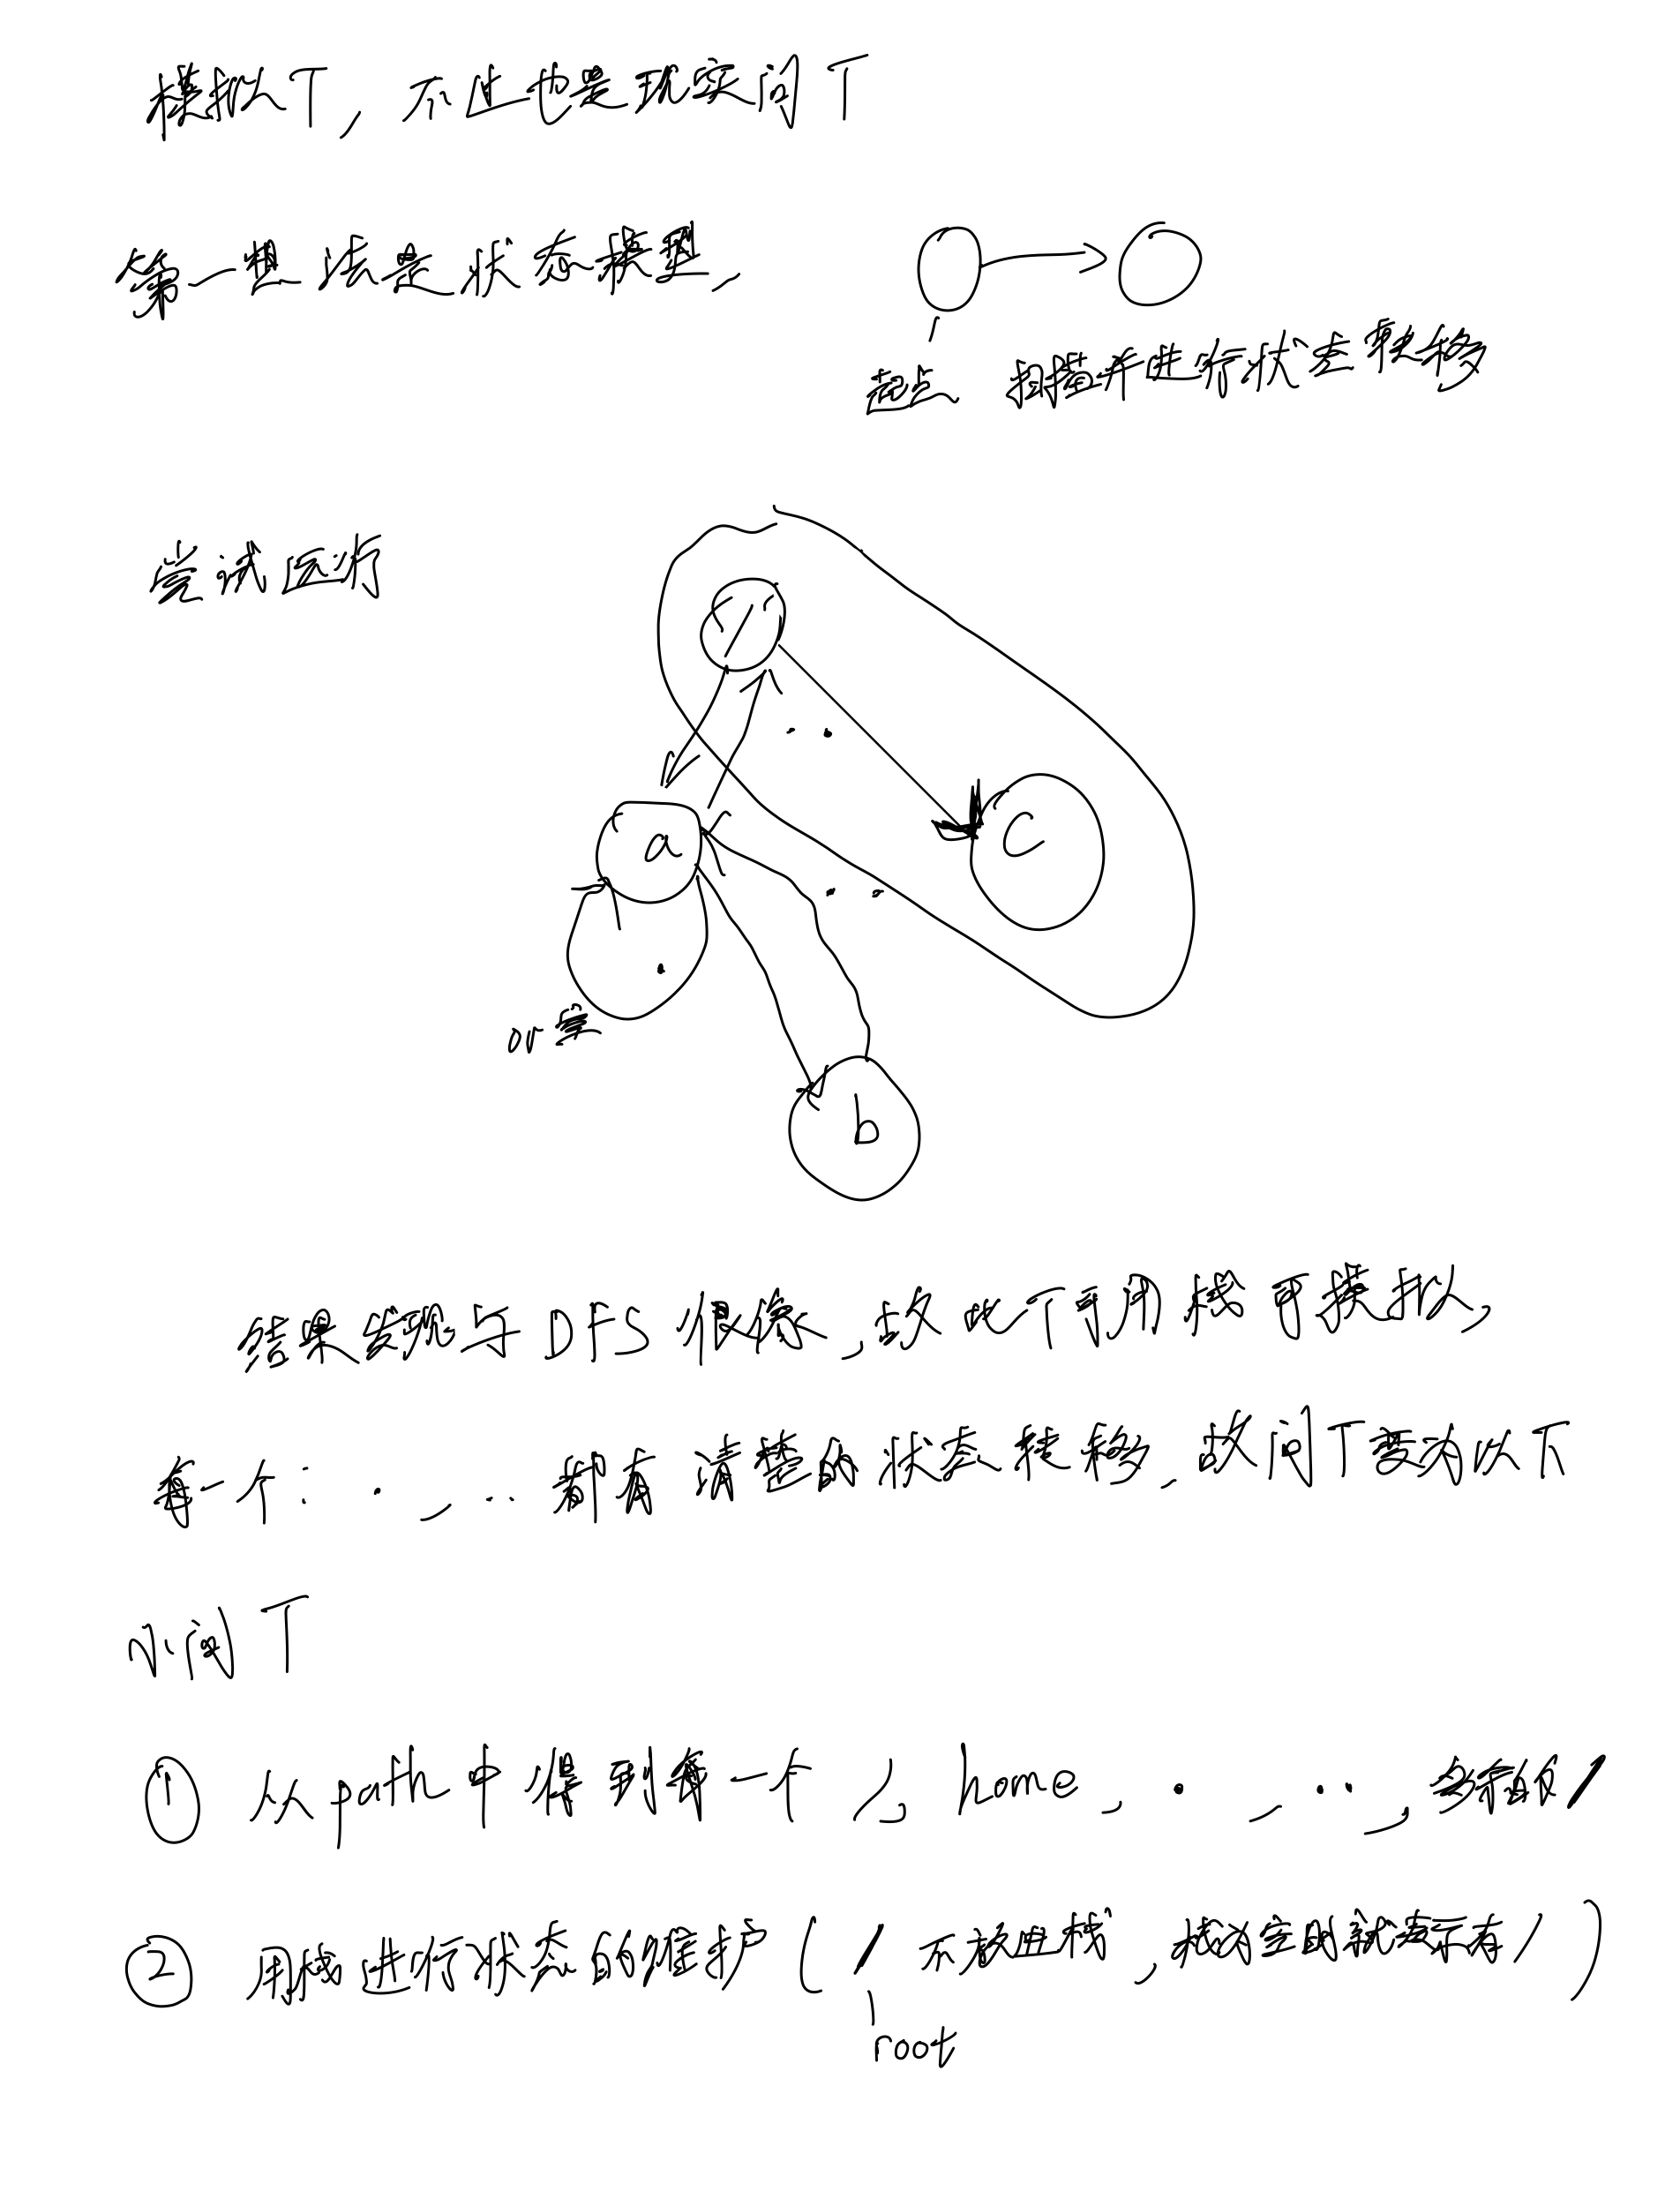 模拟T, 不过也是现实问T
第一想法是状态模型,
起点 扫描并进行状态转移
尝试画
/
..
a
c
..
.
or 空
b
结果发现与DFS很像,故此T可用栈可模拟,
每一个: ., .. 都有清楚的状态转移. 故问T变为以下
小问T
① 从path中得到每一个 /, home, ., .., 多余的/
② 用栈进行状态的维护 ( / 不被出栈, 栈为空时就表示有 / )
root